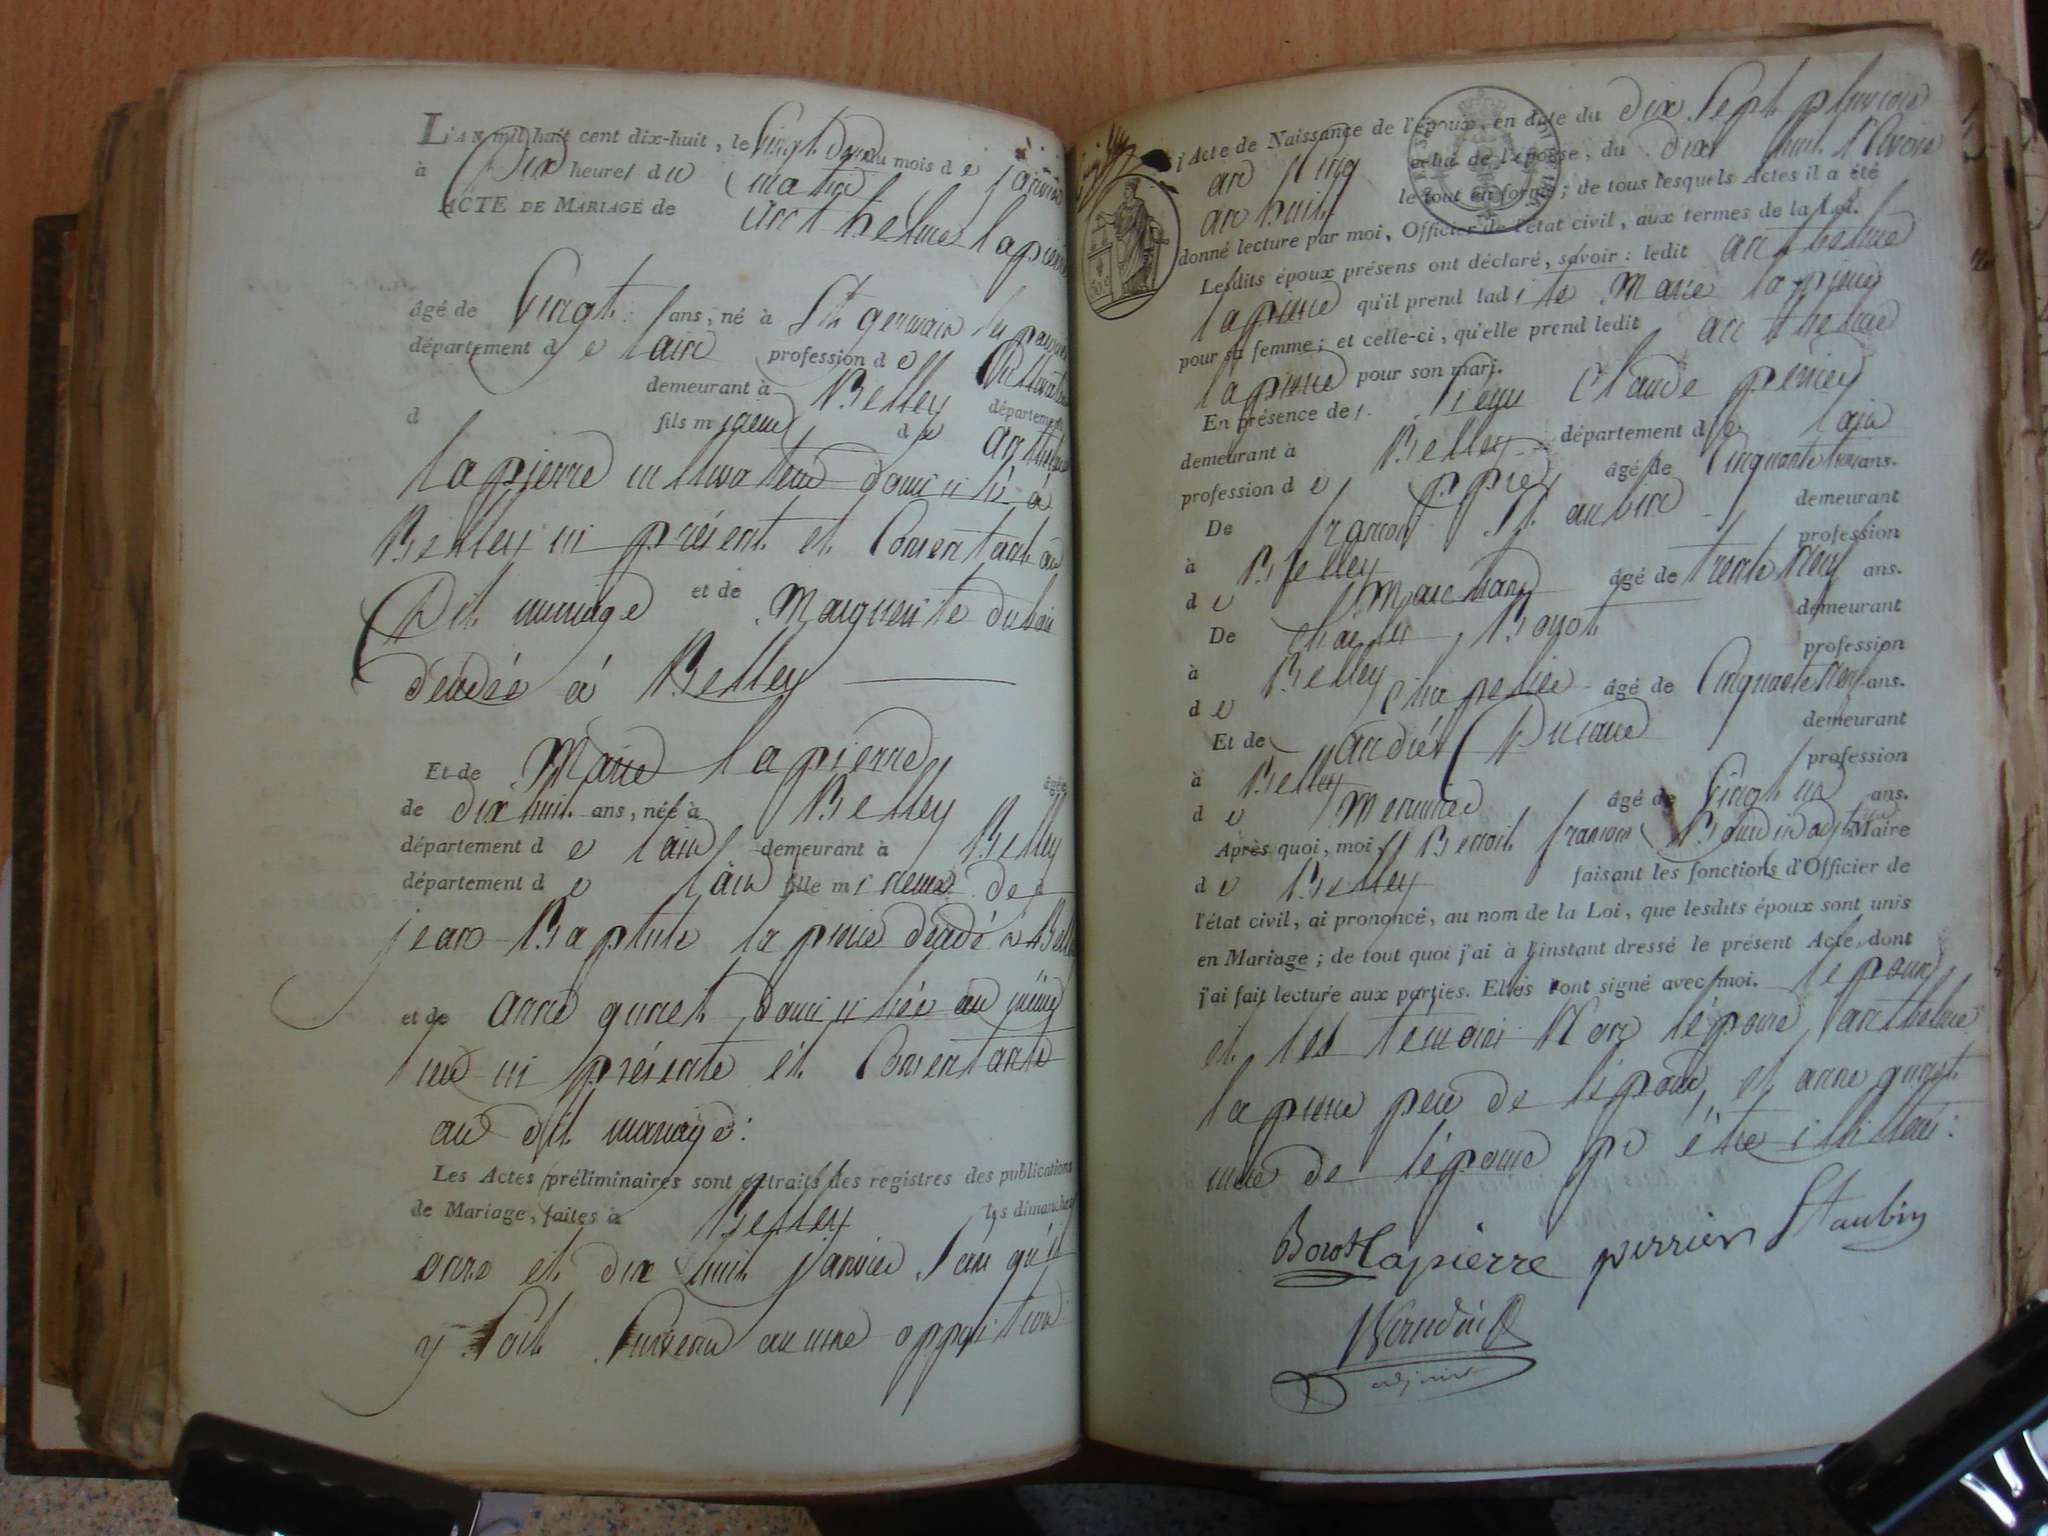 L'AN mil huit cent dix-huit, le Vingt deux du mois de janvier
à Dix heures du matin
ACTE DE MARIAGE de anthelme lapierre
âgé de Vingt ans, né à St germain
département de lain profession de Cultivateur
demeurant à Belley département
d fils mineur de anthelme
lapierre cultivateur domicilié à
Belley ici présent et Consentant au
Dit mariage et de Marguerite dubois
décédée à Belley
Et de Marie lapierre âgée
de dix huit ans, née à Belley
département de lain demeurant à Belley
département de lain fille mineure de
jean Baptiste lapierre décédé à Belley
et de anne guret domiciliée au même
lieu ici présente et Consentante
au dit mariage:
Les Actes préliminaires sont extraits des registres des publications
de Mariage, faites à Belley les dimanches
onze et dix huit janvier, sans qu'il
y soit survenu aucune opposition
l'Acte de Naissance de l'époux, en date du dix sept pluviose
an cinq celui de l'épouse, du dix huit
an huit le tout en forme; de tous lesquels Actes il a été
donné lecture par moi, Officier de l'état civil, aux termes de la Loi.
Lesdits époux présens ont déclaré, savoir: ledit anthelme
lapierre qu'il prend ladite Marie lapierre
pour sa femme; et celle-ci, qu'elle prend ledit anthelme
lapierre pour son mari.
En présence de Claude
demeurant à Belley département de lain
profession de âgé de Cinquante trois ans.
De françois St aubin demeurant
à Belley profession
de Marchand âgé de trente neuf ans.
De Charles Borot demeurant
à Belley profession
de Chapelier âgé de Cinquante neuf ans.
Et de andré demeurant
à Belley profession
de Menuisier âgé de Vingt un ans.
Après quoi, moi, Benoit françois Baudin adjoint Maire
de Belley faisant les fonctions d'Officier de
l'état civil, ai prononcé, au nom de la Loi, que lesdits époux sont unis
en Mariage; de tout quoi j'ai à l'instant dressé le présent Acte, dont
j'ai fait lecture aux parties. Elles l'ont signé avec moi. lepoux
et les témoins Non lépouse, anthelme
lapierre père de lépoux, et anne guret
mère de lépouse pr être illitérés:
Borot Lapierre perrier Staubin
Baudin
adjoint